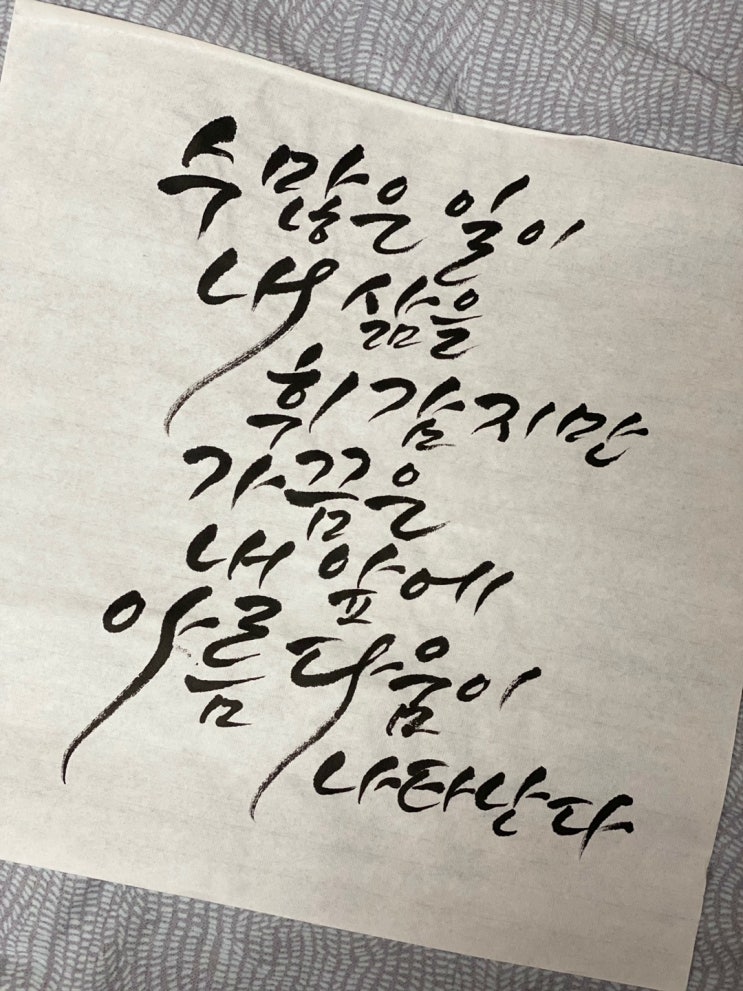 수많은 일이
내 삶을
휘감지만
가끔은
내 앞에
아름다움이
나타난다